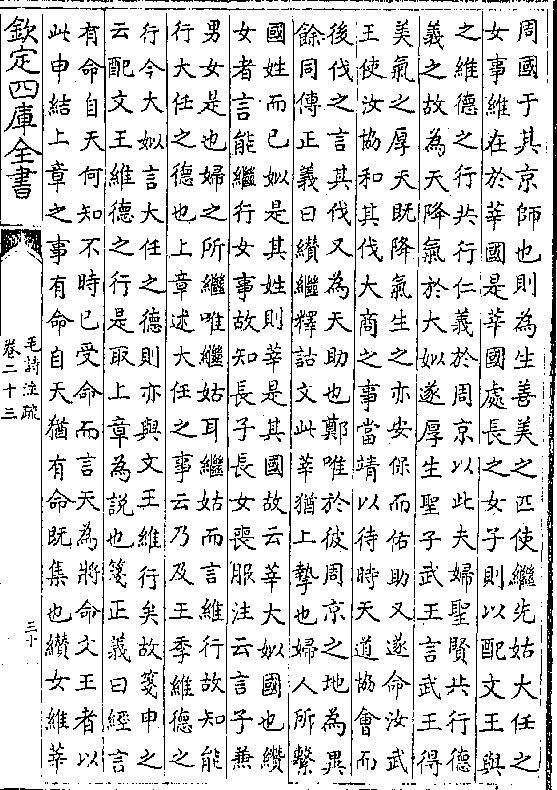 周國于其京師也則為生善美之匹使繼先姑大任之
女事維在於莘國是莘國處長之女子則以配文王與
之維德之行共行仁義於周京以此夫婦聖賢共行德
義之故為天降氣於大姒遂厚生聖子武王言武王得
美氣之厚天既降氣生之亦安保而佑助又遂命汝武
王使汝協和其伐大商之事當靖以待時天道協會而
後伐之言其伐又為天助也鄭唯於彼周京之地為異
餘同傳正義曰纘繼釋詁文此莘猶上摯也婦人所繫
國姓而已姒是其姓則莘是其國故云莘大姒國也纘
女者言能繼行女事故知長子長女喪服注云言子兼
男女是也婦之所繼唯繼姑耳繼姑而言維行故知能
行大任之德也上章述大任之事云乃及王季維德之
行今大姒言大任之德則亦與文王維行矣故箋申之
云配文王維德之行是取上章為説也箋正義曰經言
有命自天何知不時已受命而言天為將命文王者以
此申結上章之事有命自天猶有命既集也纘女維莘
欽定四庫全書
毛詩注疏
卷二十三
三十